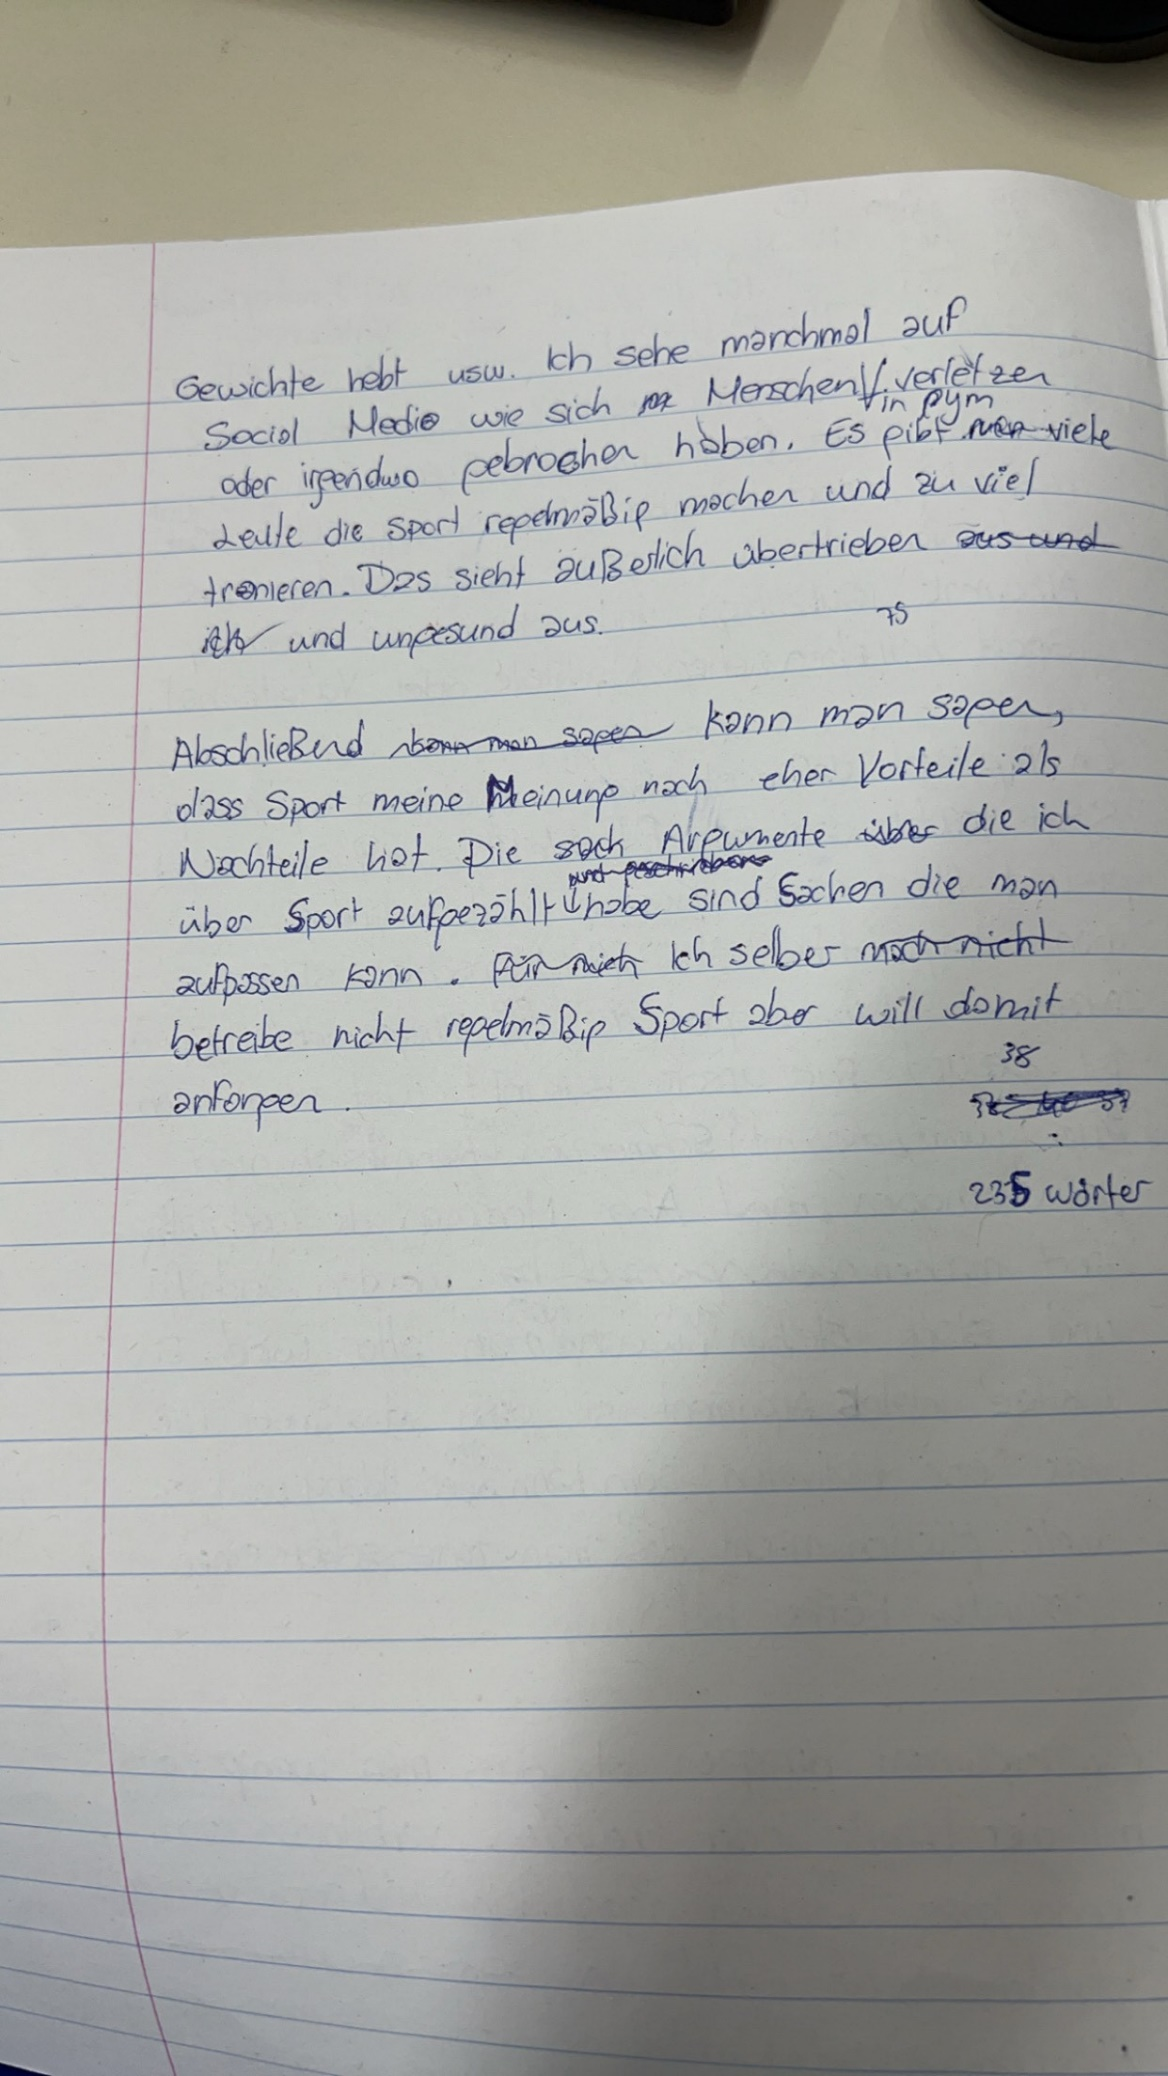 Gewichte hebt usw. Ich sehe manchmal auf
Social Media wie sich Menschen in gym verletzen
oder irgendwo gebrochen haben. Es gibt viele
Leute die sport regelmäßig machen und zu viel
tranieren. Das sieht äußerlich übertrieben aus und
und ungesund aus.
75
Abschließend kann man sagen kann man sagen,
dass Sport meine Meinung nach eher Vorteile als
Nachteile hat. Die sach Argumente über die ich
und geschriebene
über Sport aufgezählt habe sind Sachen die man
aufpassen kann. Für mich Ich selber mach nicht
betreibe nicht regelmäßig Sport aber will damit
anfangen.
38
235 wörter